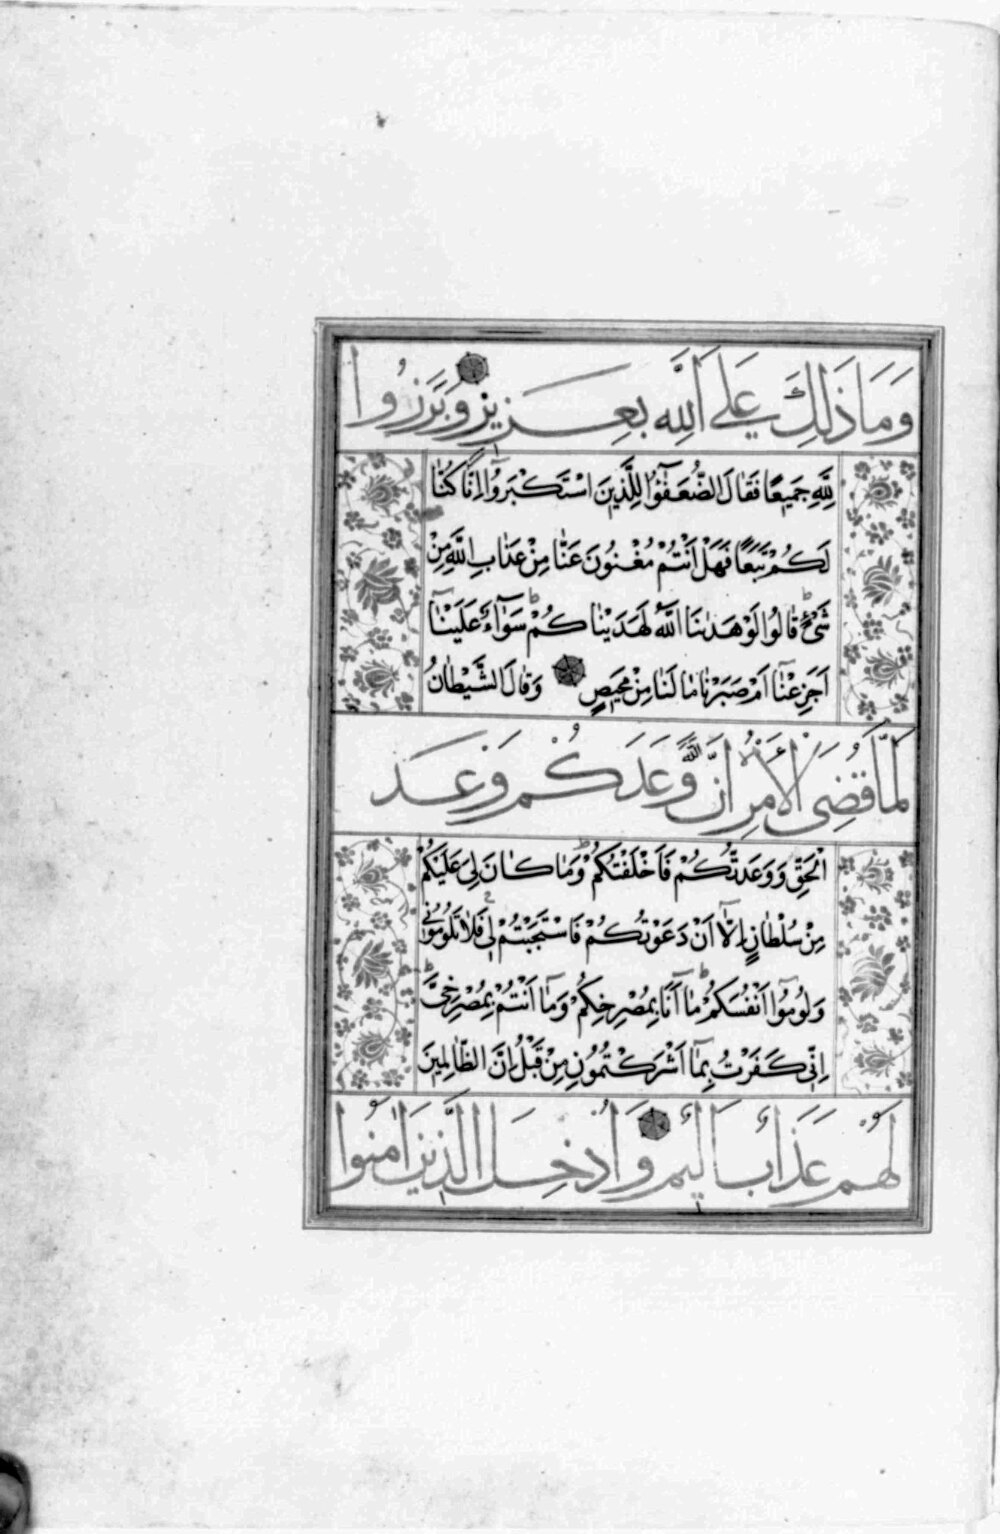 وَمَا ذَلِكَ عَلَى اللَّهِ بِعَزِيزٍ وَبَرَزُوا
لِلَّهِ جَمِيعًا فَقَالَ الضُّعَفٰٓؤُا لِلَّذِينَ اسْتَكْبَرُوٓا اِنَّا كُنَّا
لَكُمْ تَبَعًا فَهَلْ اَنْتُمْ مُغْنُونَ عَنَّا مِنْ عَذَابِ اللَّهِ مِنْ
شَیْءٍ قَالُوا لَوْ هَدٰىنَا اللَّهُ لَهَدَيْنَاكُمْ سَوَٓاءٌ عَلَيْنَٓا
اَجَزِعْنَٓا اَمْ صَبَرْنَا مَا لَنَا مِنْ مَحِيصٍ وَقَالَ الشَّيْطَانُ
لَمَّا قُضِیَ الْاَمْرُ اِنَّ اللّٰهَ وَعَدَكُمْ وَعْدَ
الْحَقِّ وَوَعَدتُّكُمْ فَاَخْلَفْتُكُمْ وَمَا كَانَ لِیَ عَلَيْكُمْ
مِنْ سُلْطَانٍ اِلَّٓا اَنْ دَعَوْتُكُمْ فَاسْتَجَبْتُمْ لِی فَلَا تَلُومُونِی
وَلُومُٓوا اَنْفُسَكُمْ مَٓا اَنَا بِمُصْرِخِكُمْ وَمَٓا اَنْتُمْ بِمُصْرِخِیَّ
اِنِّی كَفَرْتُ بِمَٓا اَشْرَكْتُمُونِ مِنْ قَبْلُ اِنَّ الظَّالِمِينَ
لَهُمْ عَذَابٌ اَلِيمٌ وَاُدْخِلَ الَّذِينَ اٰمَنُوا